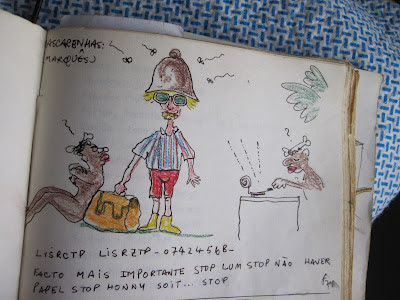 MASCARENHAS:
MARQUÊS)
?
LISRCTP LISRZTP - 0742456B -
FACTO MAIS IMPORTANTE STOP LUM STOP NÃO HAVER
PAPEL STOP HONNY SOIT... STOP